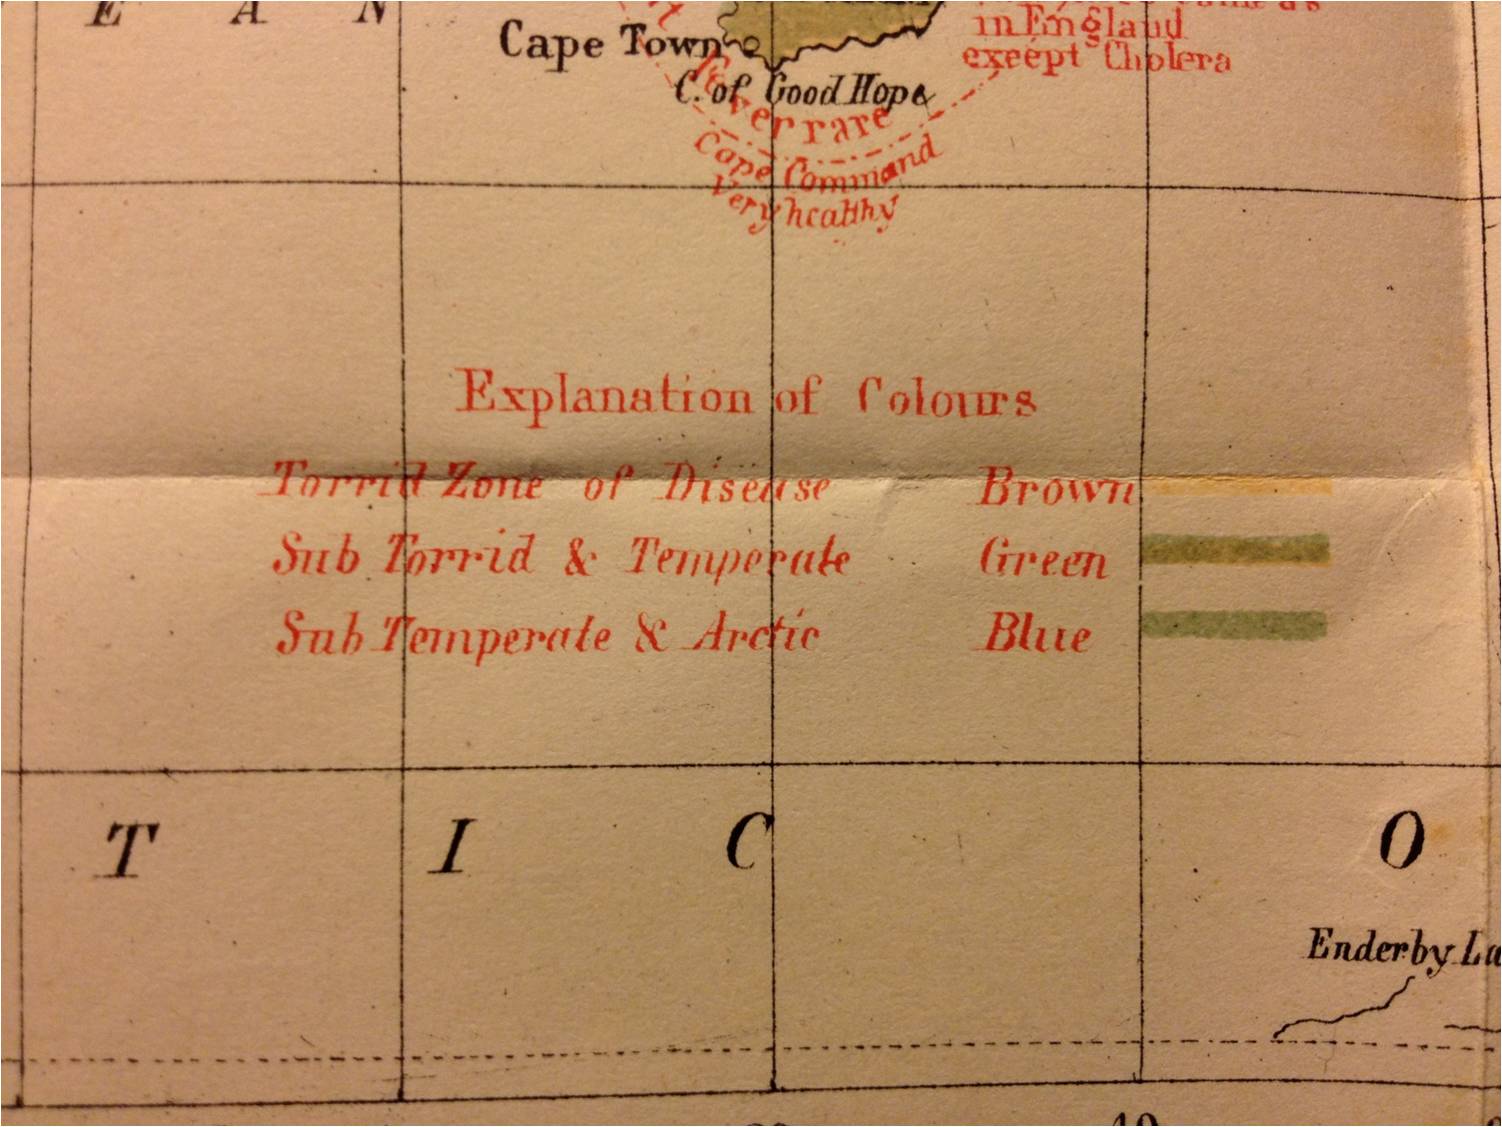 E A N
in England
except Cholera
Cape Town
C. of Good Hope
Fever rare
Cape Command
Very healthy
Explanation of Colours
Torrid Zone of Disease Brown
Sub Torrid & Temperate Green
Sub Temperate & Arctic Blue
T I C O
Enderby